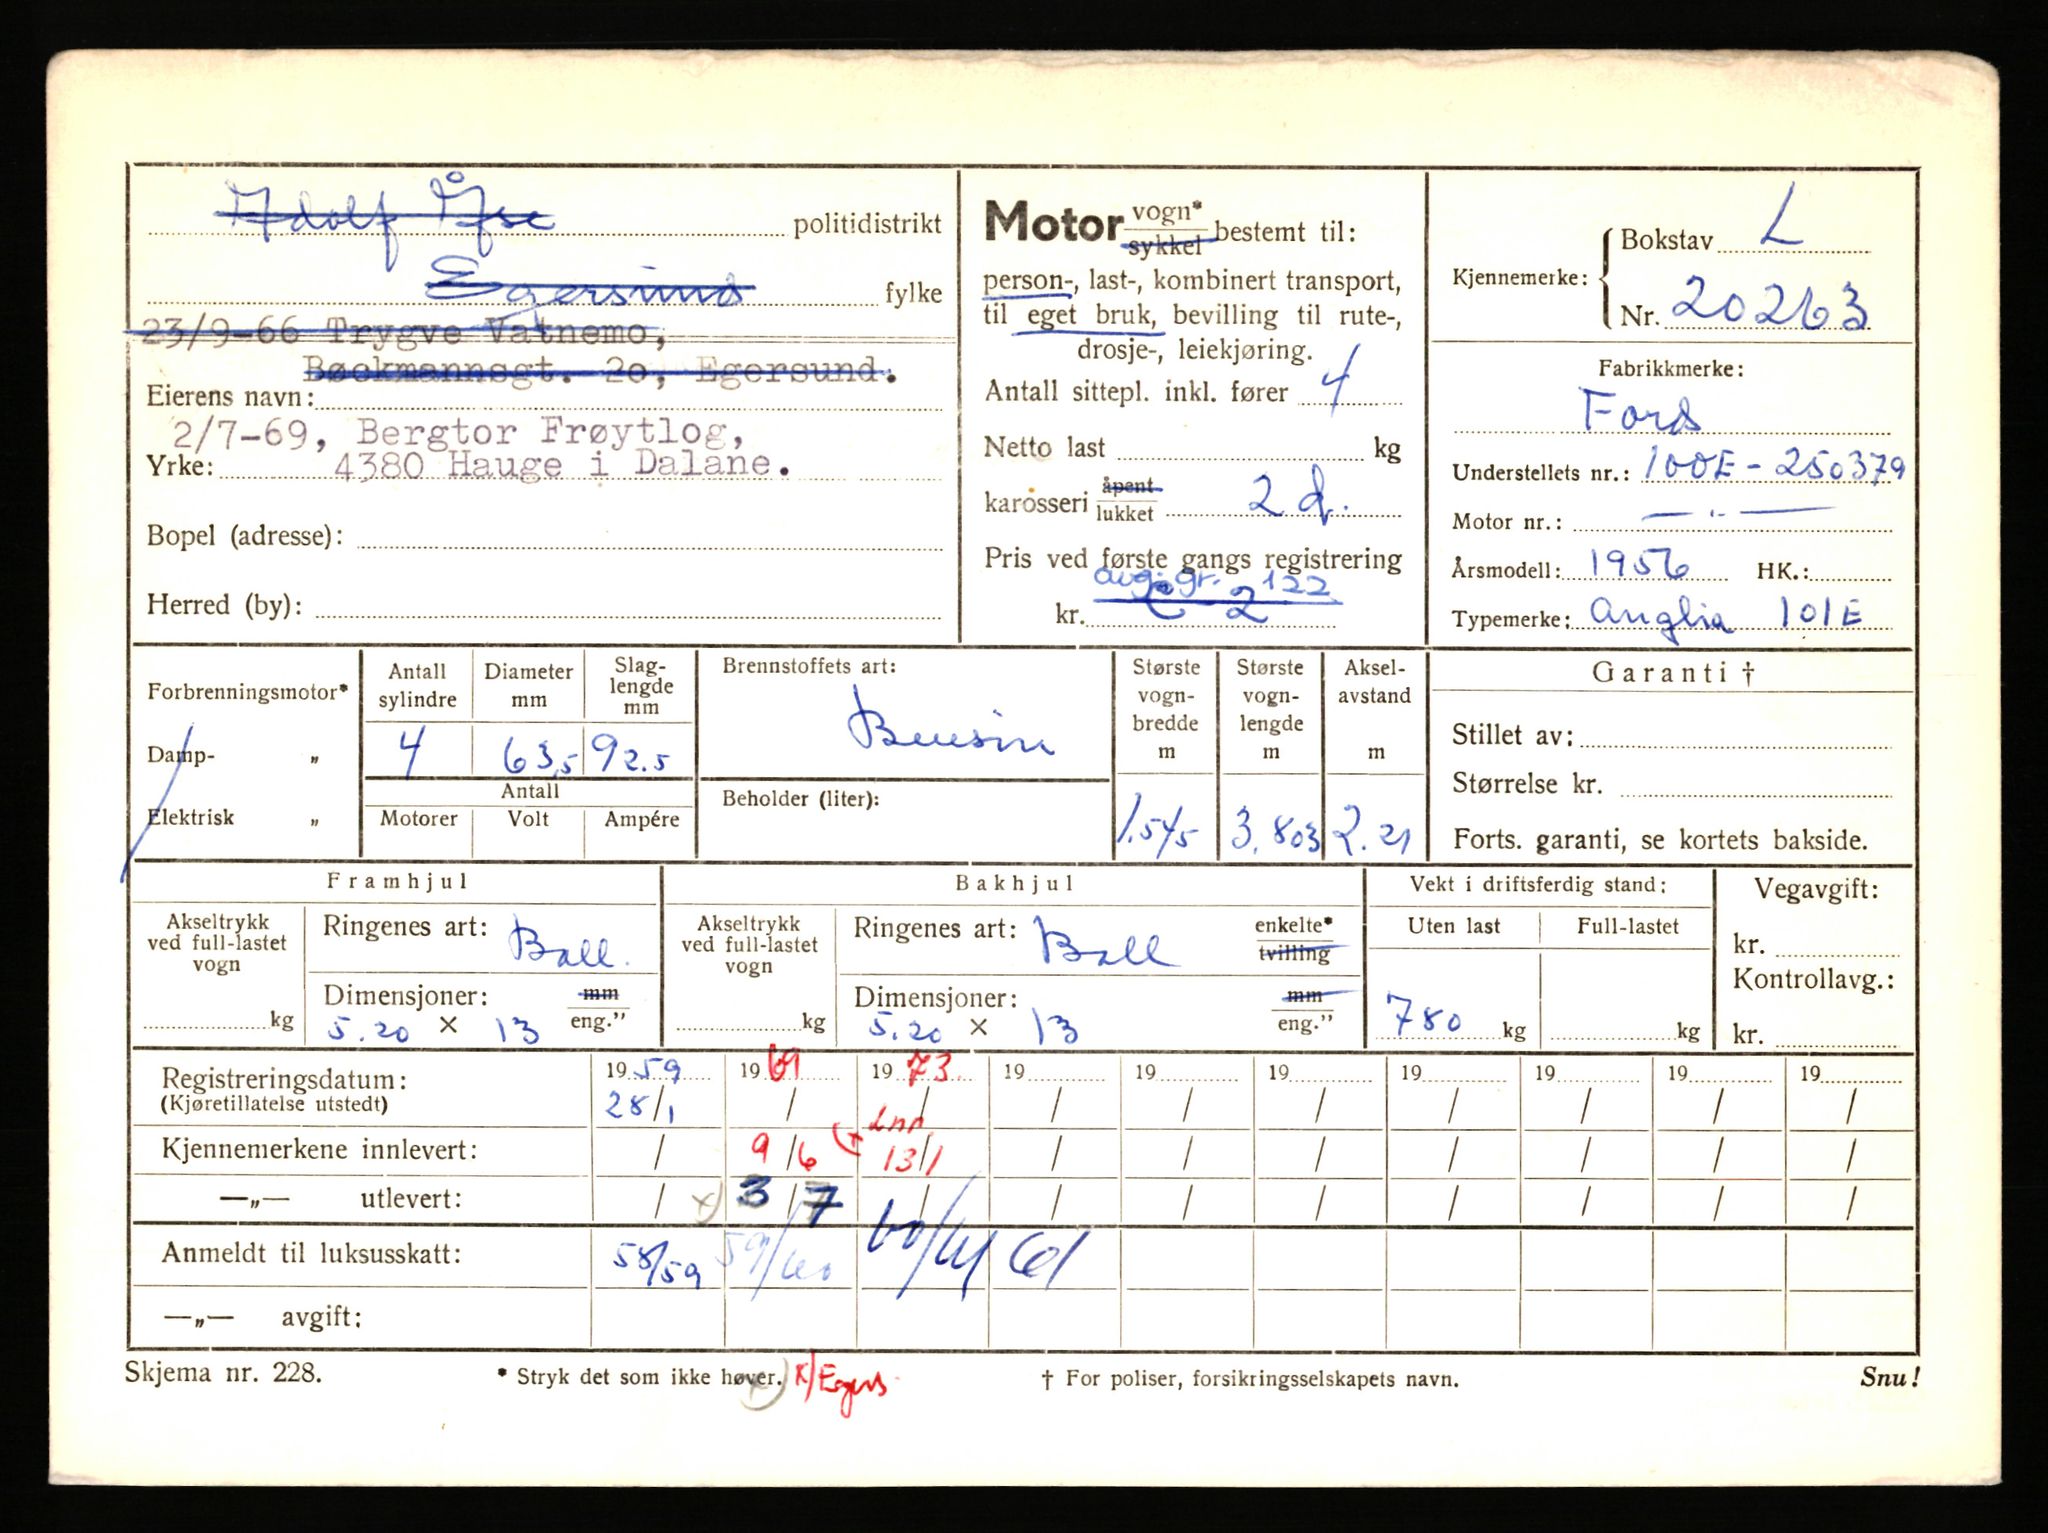 Adolf Åse politidistrikt
Egersund fylke
23/9-66 Trygve Vatnemo,
Bøckmannsgt. 20, Egersund.
Eierens navn:
2/7-69, Bergtor Frøytlog,
Yrke: 4380 Hauge i Dalane.
Bopel (adresse):
Herred (by):
Motor vogn* sykkel bestemt til:
person-, last-, kombinert transport,
til eget bruk, bevilling til rute-,
drosje-, leiekjøring.
Antall sittepl. inkl. fører 4
Netto last kg
karosseri åpent lukket 2 d.
Pris ved første gangs registrering
avg. gr. 122
kr. 2
Kjennemerke: Bokstav L
Nr. 20263
Fabrikkmerke:
Ford
Understellets nr.: 100E - 250379
Motor nr.: — " —
Årsmodell: 1956 HK.:
Typemerke: Anglia 101E
Forbrenningsmotor*
Damp- "
Elektrisk "
Antall sylindre
Diameter mm
Slag- lengde mm
4 63,5 92.5
Antall
Motorer Volt Ampére
Brennstoffets art:
Bensin
Beholder (liter):
Største vogn- bredde m
1.545
Største vogn- lengde m
3.803
Aksel- avstand m
2.21
Garanti †
Stillet av:
Størrelse kr.
Forts. garanti, se kortets bakside.
Framhjul
Akseltrykk ved full-lastet vogn
kg
Ringenes art: Ball.
Dimensjoner: mm
5.20 x 13 eng."
Bakhjul
Akseltrykk ved full-lastet vogn
kg
Ringenes art: Ball enkelte* tvilling
Dimensjoner: mm
5.20 x 13 eng."
Vekt i driftsferdig stand:
Uten last Full-lastet
780 kg kg
Vegavgift:
kr.
Kontrollavg.:
kr.
Registreringsdatum: 19 59 19 69 19 73 19 19 19 19 19 19 19
(Kjøretillatelse utstedt) 28/1 / / / / / / / / /
Lnn
Kjennemerkene innlevert: / 9/6 (x 13/1 / / / / / / /
—„— utlevert: / x) 3/7 / / / / / / / /
Anmeldt til luksusskatt: 58/59 59/60 60/61 61
—„— avgift:
Skjema nr. 228.
* Stryk det som ikke høver. x) x/Egers.
† For poliser, forsikringsselskapets navn.
Snu!